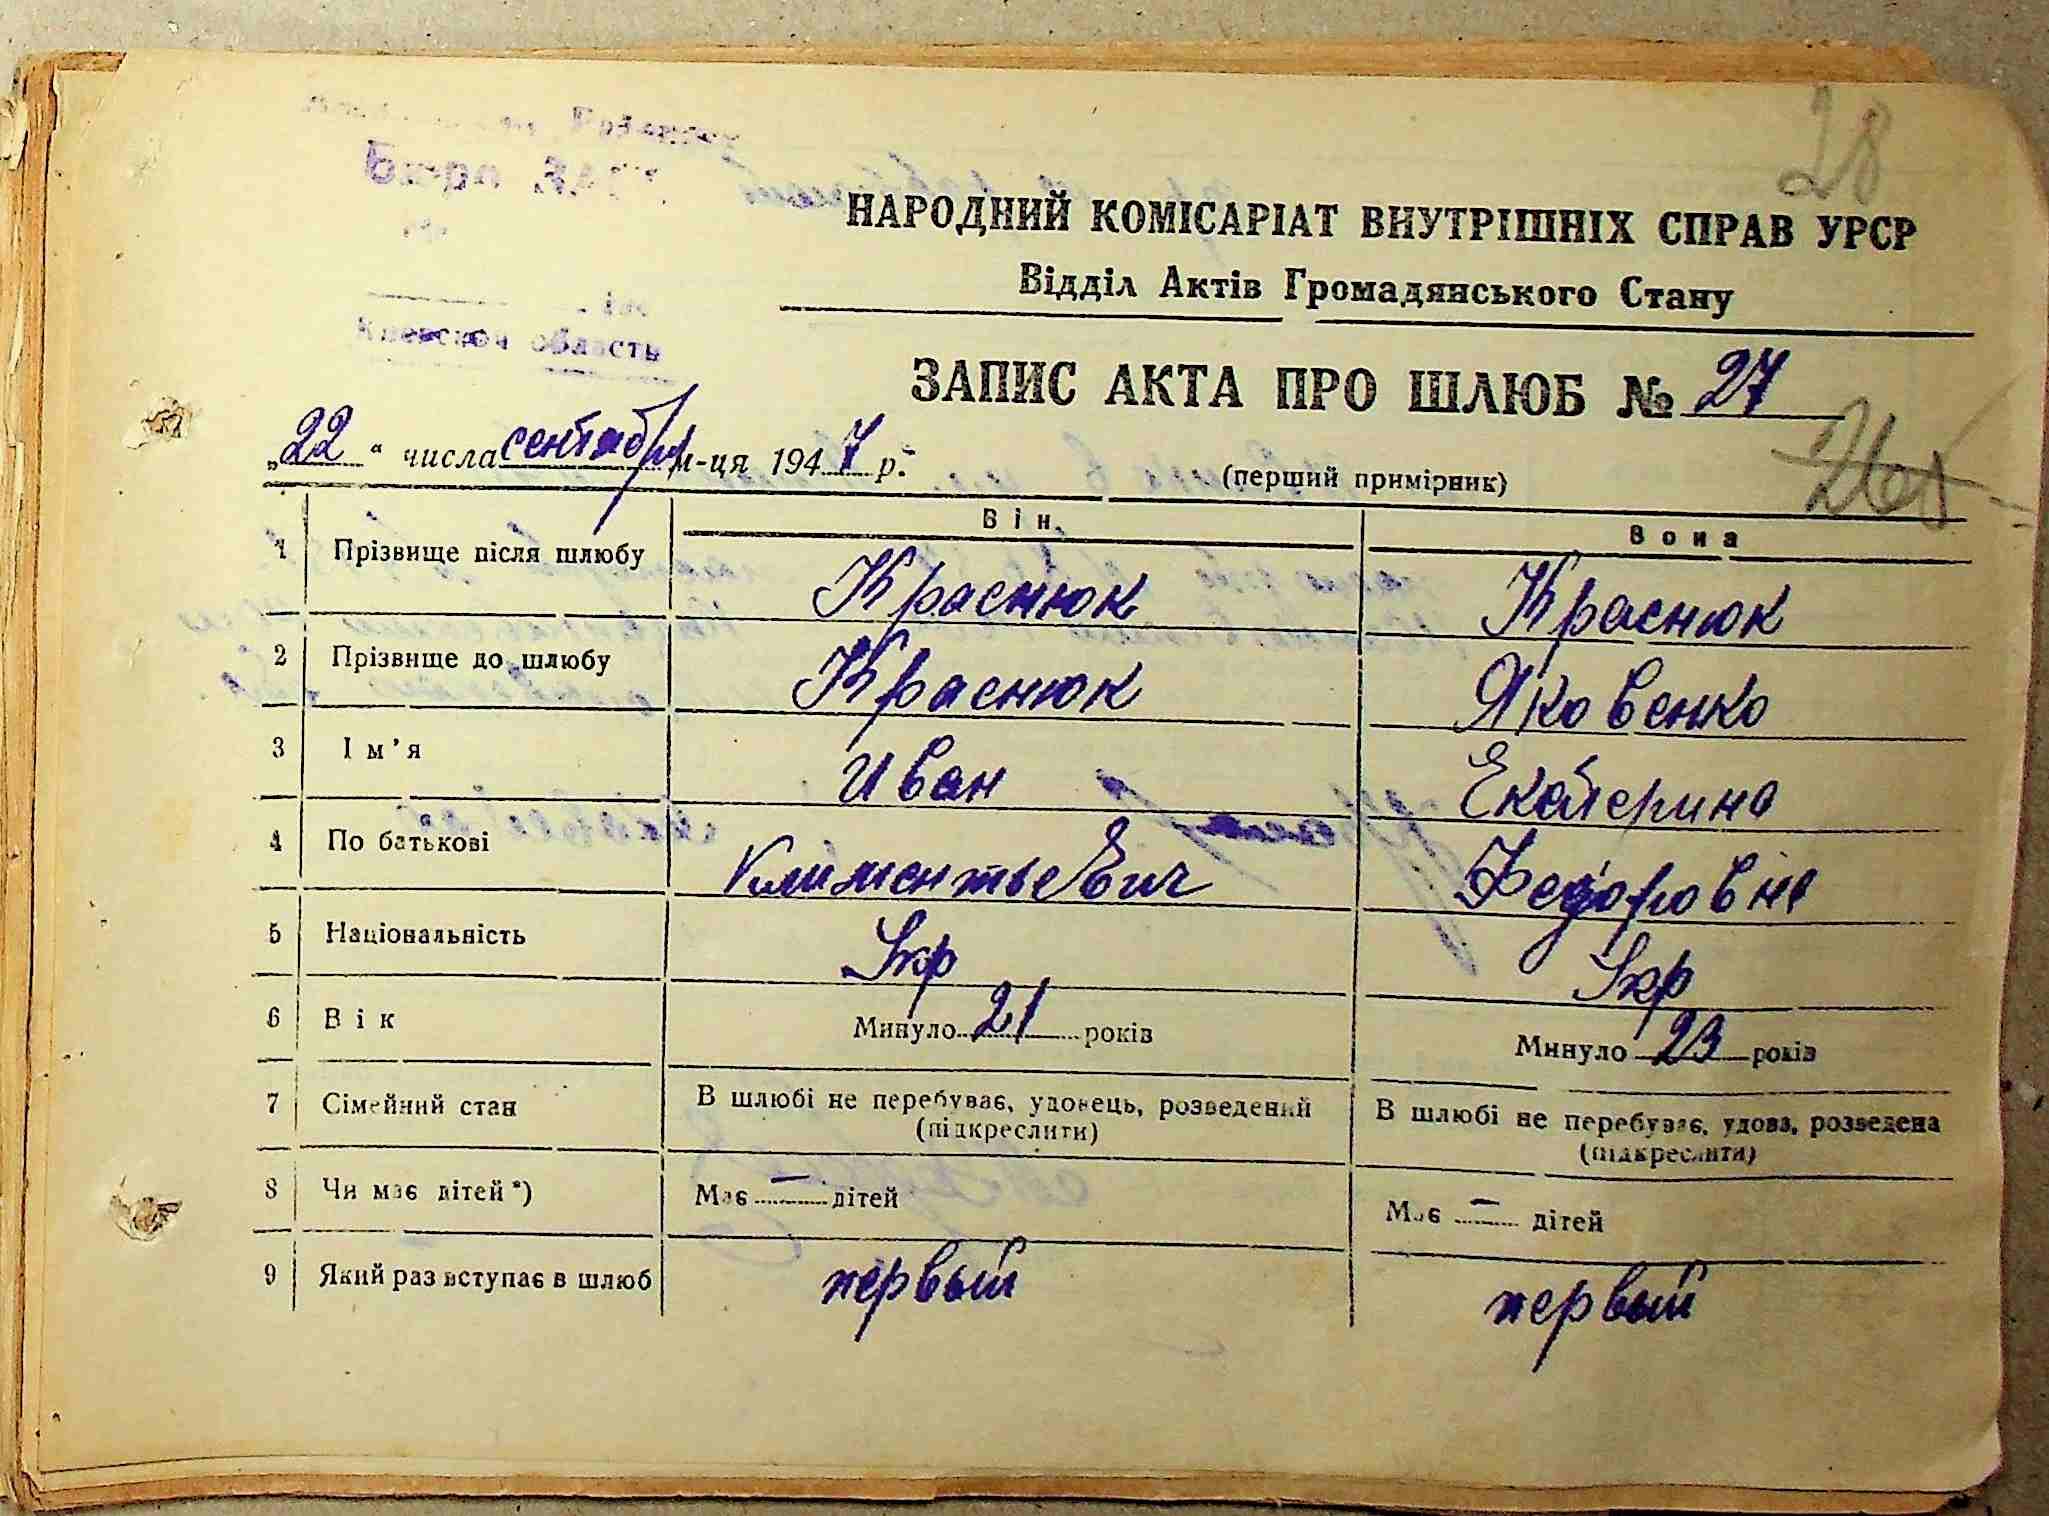 28
Бюро ЗАГС
Киевской область
НАРОДНИЙ КОМІСАРІАТ ВНУТРІШНІХ СПРАВ УРСР
Відділ Актів Громадянського Стану
ЗАПИС АКТА ПРО ШЛЮБ № 27
„22“ числа сентября м-ця 1947 р.
(перший примірник)
26
Він Вона
1 Прізвище після шлюбу Краснюк Краснюк
2 Прізвище до шлюбу Краснюк Яковенко
3 Ім’я Иван Екатерина
4 По батькові Климентьевич Федоровна
5 Національність Укр Укр
6 Вік Минуло 21 років Минуло 23 років
7 Сімейний стан В шлюбі не перебуває, удовець, розведений (підкреслити) В шлюбі не перебуває, удова, розведена (підкреслити)
8 Чи має дітей*) Має — дітей Має — дітей
9 Який раз вступає в шлюб первый первый